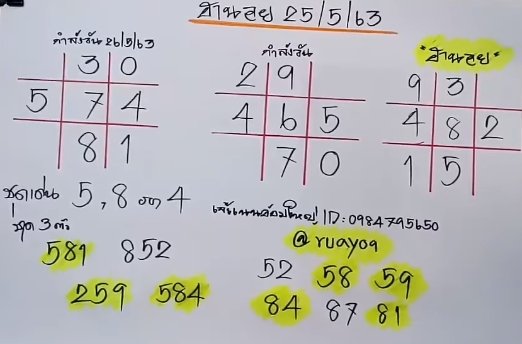 ฮานอย 25/5/63
กำลังวัน 26/5/63
3 0
5 7 4
8 1
กำลังวัน
2 9
4 6 5
7 0
*ฮานอย*
9 3
4 8 2
1 5
ชุดเด่น 5,8 รอง 4
ชุด 3 ตัว
581 852
259 584
ID: 0984795650
@ruayoa
52 58 59
84 87 81